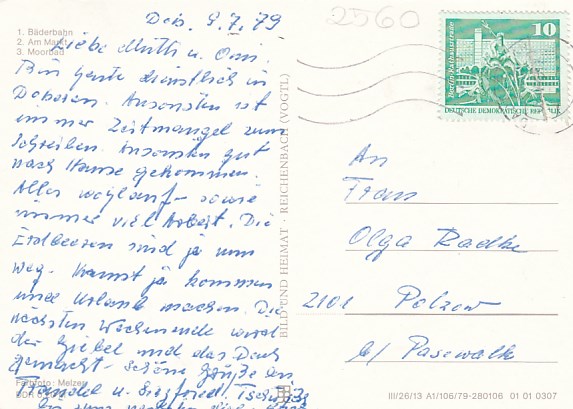 Dob. 9.7.79
2560
1. Bäderbahn
2. Am Markt
3. Moorbad
Liebe Mutti u. Omi.
Bin heute dienstlich in
Doberan. Ansonsten ist
immer Zeitmangel zum
Schreiben. Ansonsten gut
nach Hause gekommen.
Alles wohlauf - sowie
immer viel Arbeit. Die
Erdbeeren sind ja nun
weg. Kannst ja kommen
und Urlaub machen. Die
nächsten Wochenende wird
der Giebel und das Dach
gemacht - schöne Grüße von
u. Siegfried. Tschüß
Farbfoto: Melzer
BILD UND HEIMAT · REICHENBACH (VOGTL)
10
Berlin, Rathausstraße
DEUTSCHE DEMOKRATISCHE REPUBLIK
An
Frau
Olga Radke
2101 Polzow
b/ Pasewalk
III/26/13 A1/106/79-280106 01 01 0307